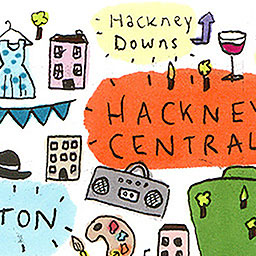 Hackney
Downs
HACKNEY
CENTRAL
TON